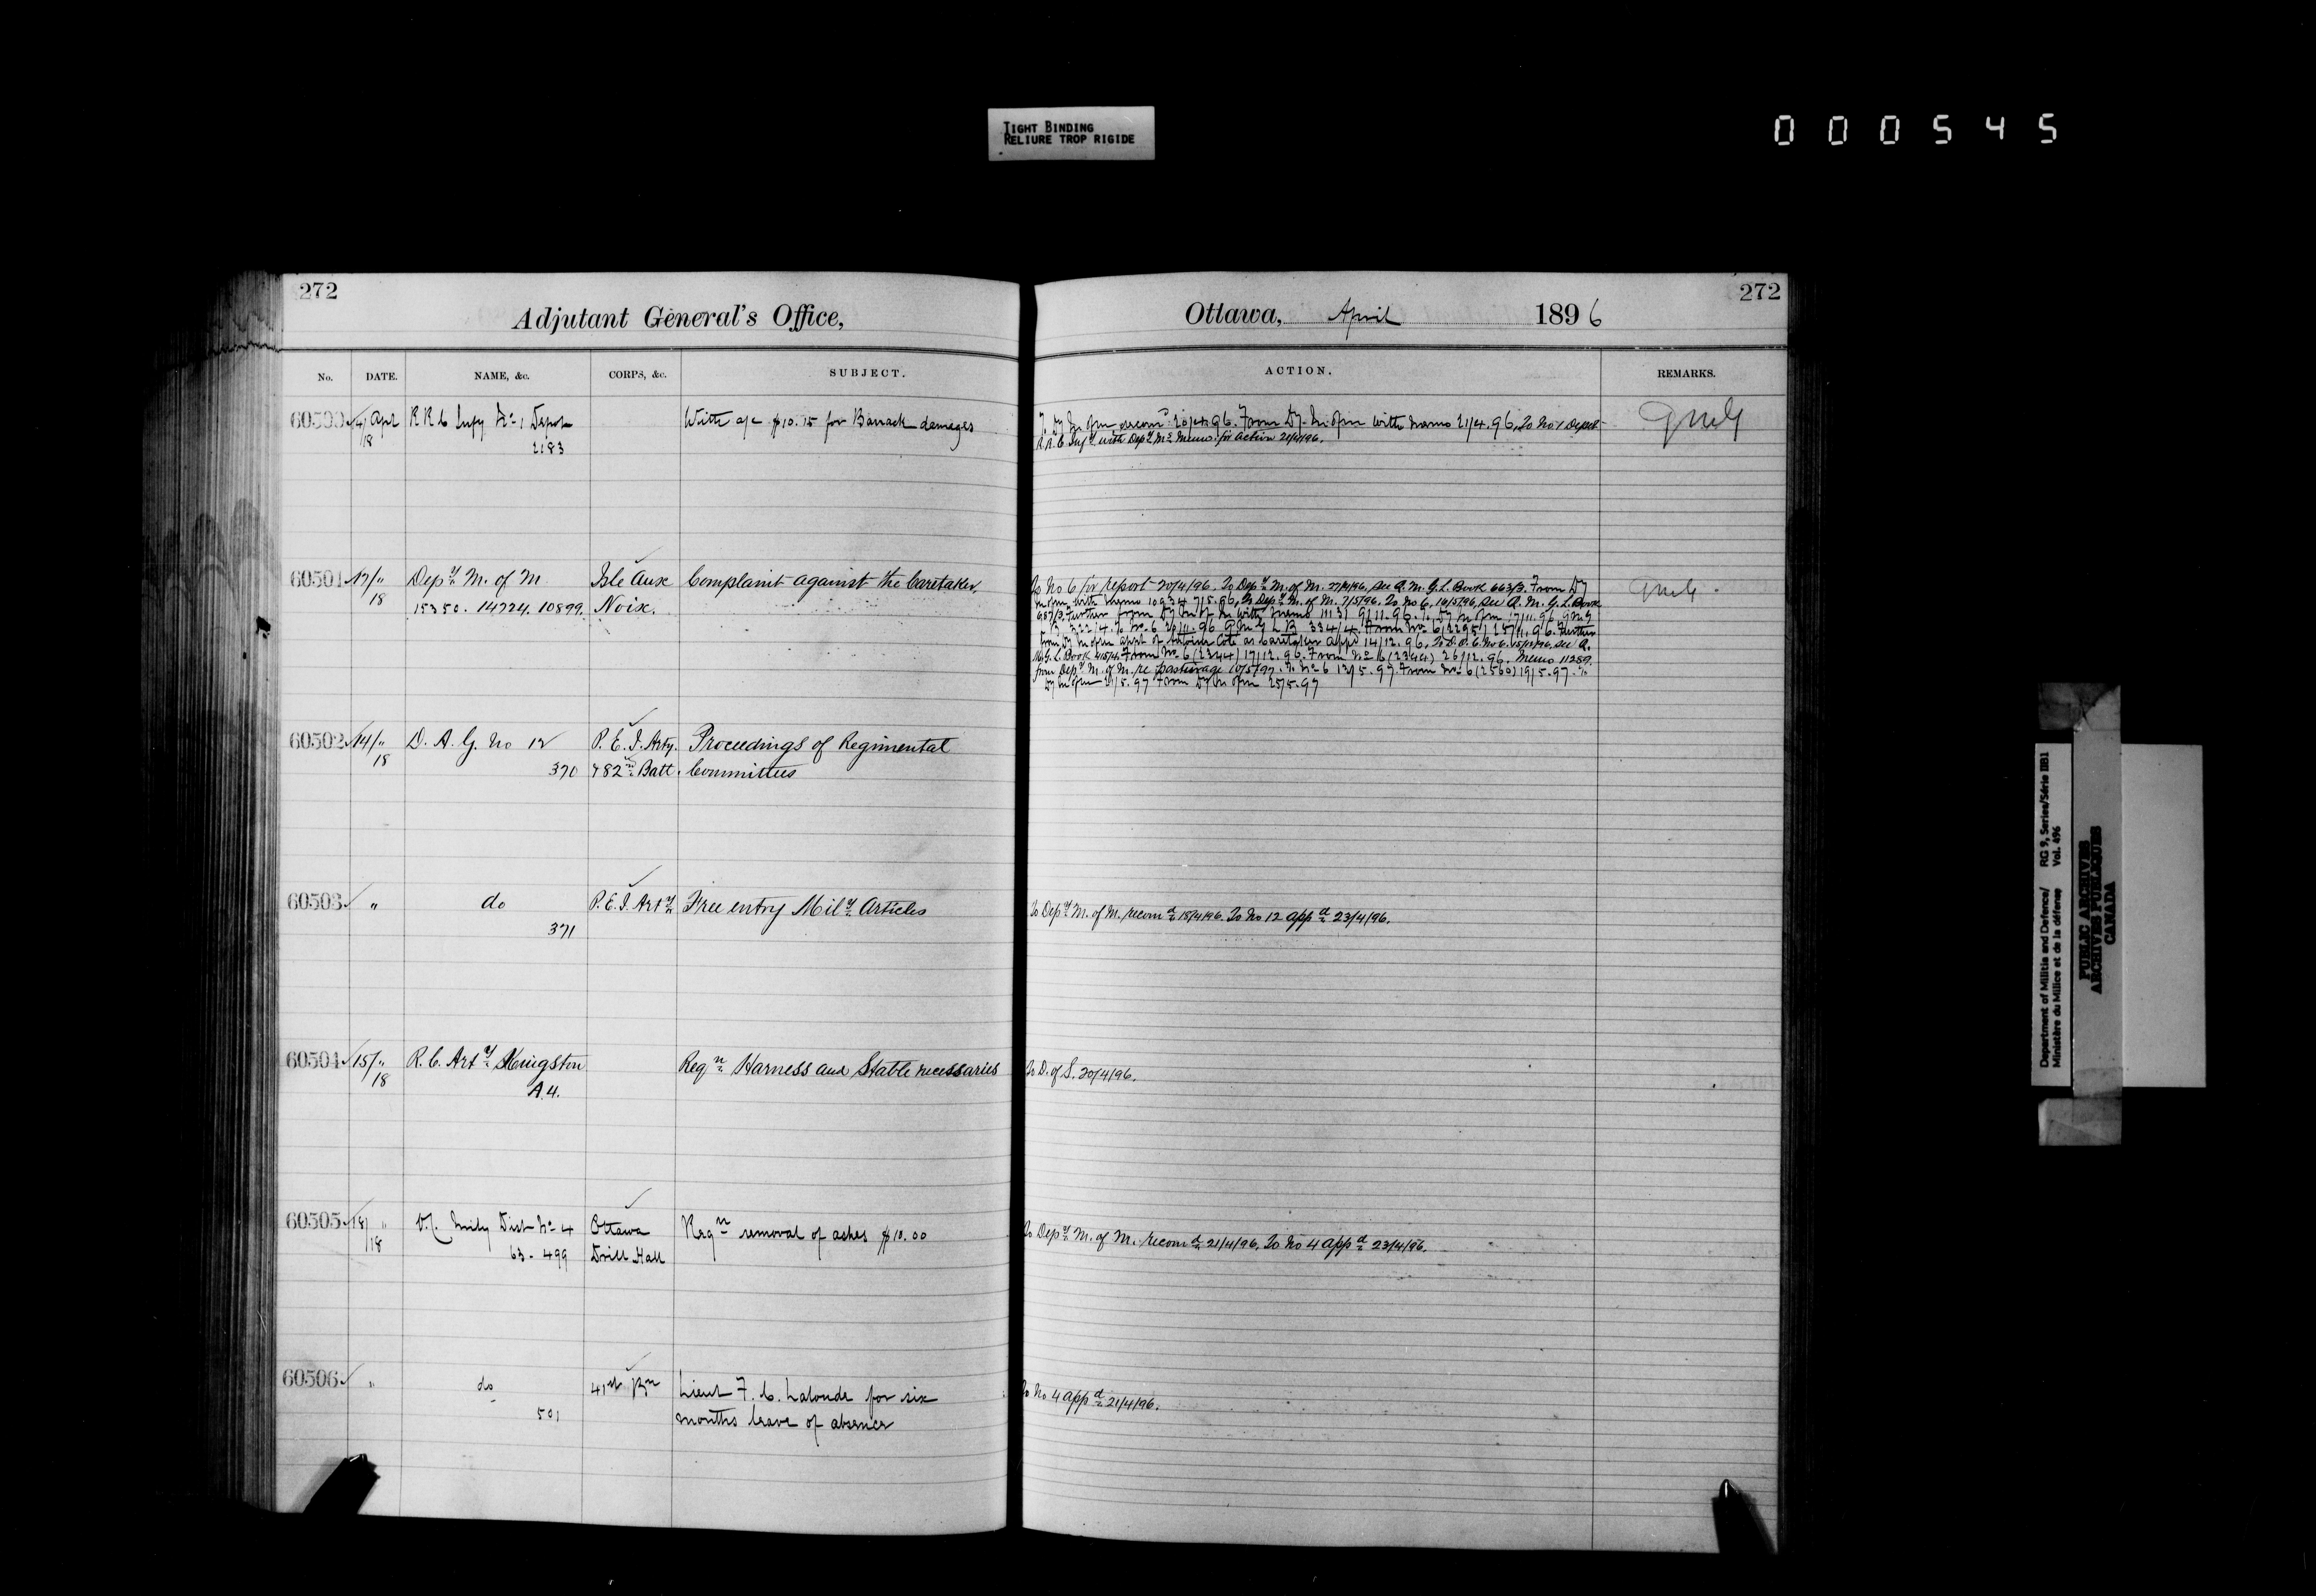 TIGHT BINDING
RELIURE TROP RIGIDE
000545
272
Adjutant General's Office,
Ottawa, April 1896
272
No. DATE. NAME, &c. CORPS, &c. SUBJECT. ACTION. REMARKS.
14/18 Apl R R C Infy No 1 Depot With a/c $10.15 for Barrack damages
2183
recomd 20/4.96. From Dy M of M with memo 21/4.96. To No 1 Depot
R.R.C. Infy. with Depy M's Memo. for action 21/4/96.
QMG
60501 17/18 " Depy M. of M. Isle Aux Complaint against the Caretaker.
15350. 14724. 10899. Noix.
To No 6 for report 20/4/96. To Depy M. of M. 27/4/96, See Q.M.G.L. Book 663/3. From Dy
M of M with memo 10934 7/5.96, To Depy M. of M. 7/5/96. To No 6, 16/5/96, See Q.M.G.L. Book
687/3. Further from Dy M of M with memo 11131 9/11.96. To Dy M of M 17/11.96 QMG
LB 322/4. To No. 6 20/11.96 QMG LB 334/4. From No. 6 (2295) 25/11.96. Further
from Dy M of M appt of Antoine Coté as caretaker appd 14/12.96, To D.O.C. No 6. 15/12/96, See Q.
M.G.L. Book 415/4. From No 6 (2344) 17/12.96. From No 6 (2344) 26/12.96. Memo 11289
from Depy M. of M. re pasturage 10/5/97. To No 6 13/5.97. From No. 6 (2560) 19/5.97. To
Dy M of M 21/5.97 From Dy M of M 25/5.97
QMG.
60502 14/18 " D. A. G. No 12 P.E.I. Arty. Proceedings of Regimental
370 & 82nd Batt. Committees
60503 " do P.E.I. Arty Free entry Mily Articles
371
To Depy M. of M. recomd 18/4/96. To No 12 appd 23/4/96.
60504 15/18 " R.C. Arty Kingston Reqn Harness and Stable necessaries
A.4.
To D. of S. 20/4/96.
60505 18/18 " Mily Dist No 4 Ottawa Reqn removal of ashes $10.00
63-499 Drill Hall
To Depy M. of M. recomd 21/4/96, To No 4 appd 23/4/96.
60506 " do 41st Bn Lieut F. C. Lalonde for six
501 months leave of absence
To No 4 appd 21/4/96.
Department of Militia and Defence/ RG 9, Series/Série IIB1
Ministère du Milice et de la défense Vol. 496
PUBLIC ARCHIVES
ARCHIVES PUBLIQUES
CANADA